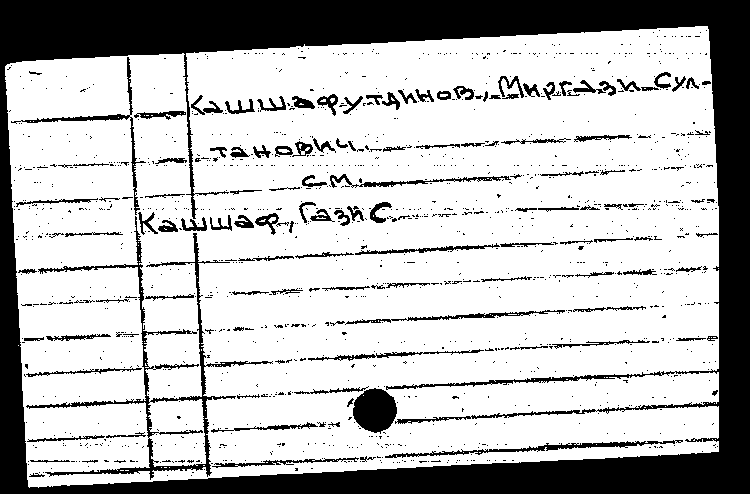 Кашшафутдинов, Миргази Сул-
танович.
см.
Кашшаф, Гази С.